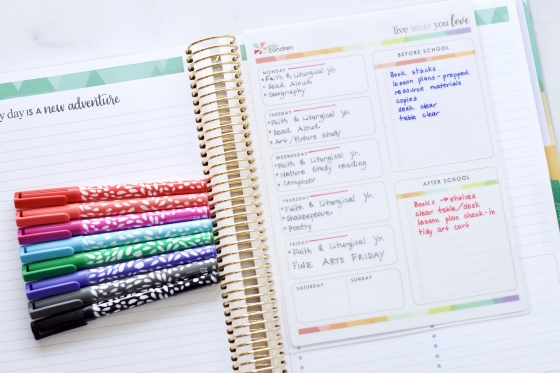 y day IS A new adventure
erin condren
live WHAT you love
MONDAY
• Faith & Liturgical Yr.
• Read Aloud
• Geography
TUESDAY
• Faith & Liturgical Yr.
• Read Aloud
• Art / Picture Study
WEDNESDAY
• Faith & Liturgical Yr.
• Nature Study reading
• Composer
THURSDAY
• Faith & Liturgical Yr.
• Shakespeare
• Poetry
FRIDAY
• Faith & Liturgical Yr.
FINE ARTS FRIDAY
SATURDAY
SUNDAY
BEFORE SCHOOL
Book stacks
lesson plans - prepped
resource materials
copies
desk clear
table clear
AFTER SCHOOL
Books → shelves
clear table/desk
lesson plan check-in
tidy art cart